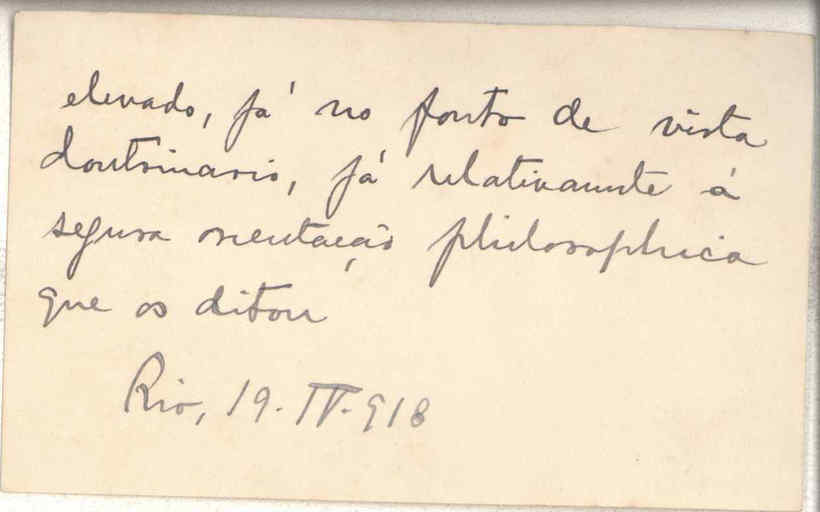 elevado, já no ponto de vista
doutrinario, já relativamente á
segura orientação philosophica
que os ditou
Rio, 19-IV-918